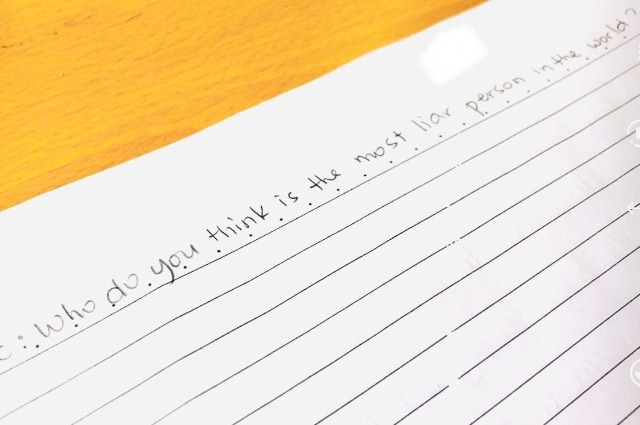 : Who do you think is the most liar person in the world?